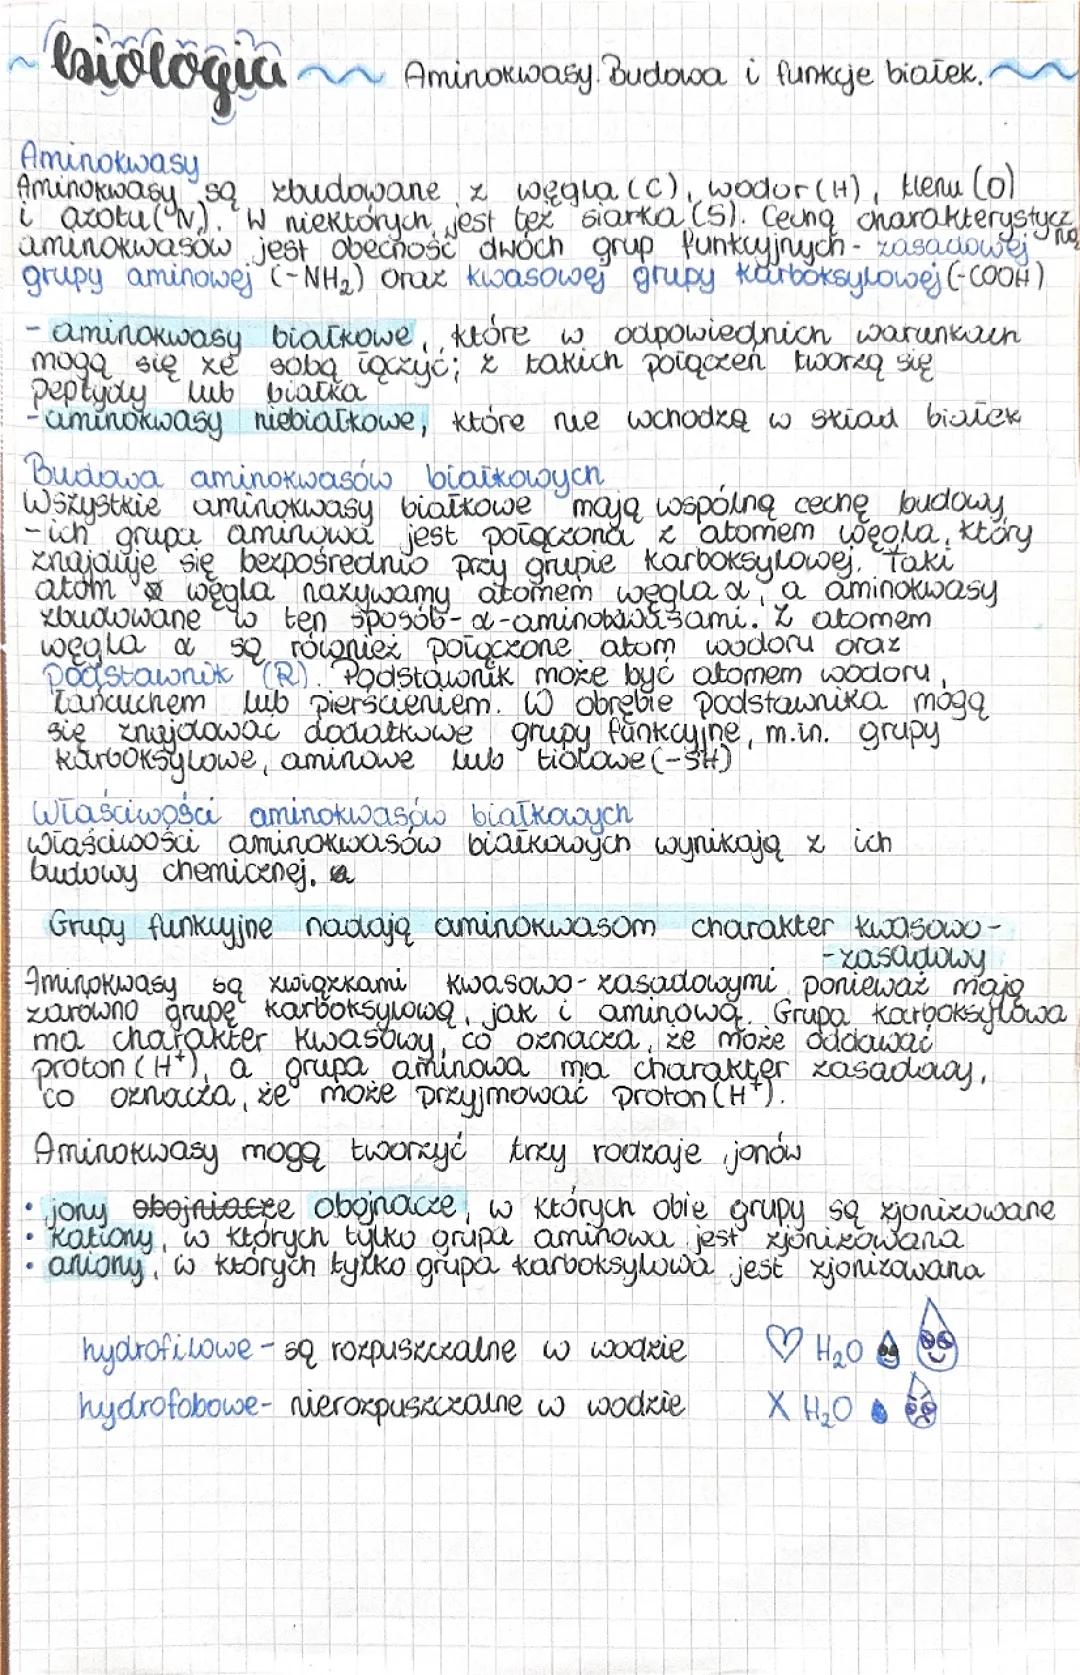 biologia Aminokwasy. Budowa i funkcje białek.
Aminokwasy
Aminokwasy są zbudowane z węgla (C), wodor (H), tlenu (O)
i azotu (N). W niektórych jest też siarka (S). Cechą charakterystyczną
aminokwasów jest obecność dwóch grup funkcyjnych - zasadowej
grupy aminowej (-NH₂) oraz kwasowej grupy karboksylowej (-COOH)
- aminokwasy białkowe, które w odpowiednich warunkach
mogą się ze sobą łączyć; z takich połączeń tworzą się
peptydy lub białka
- aminokwasy niebiałkowe, które nie wchodzą w skład białek
Budowa aminokwasów białkowych
Wszystkie aminokwasy białkowe mają wspólną cechę budowy
- ich grupa aminowa jest połączona z atomem węgla, który
znajduje się bezpośrednio przy grupie karboksylowej. Taki
atom węgla nazywamy atomem węgla α, a aminokwasy
zbudowane w ten sposób - α-aminokwasami. Z atomem
węgla α są również połączone atom wodoru oraz
podstawnik (R). Podstawnik może być atomem wodoru,
łańcuchem lub pierścieniem. W obrębie podstawnika mogą
się znajdować dodatkowe grupy funkcyjne, m.in. grupy
karboksylowe, aminowe lub tiolowe (-SH)
Właściwości aminokwasów białkowych
właściwości aminokwasów białkowych wynikają z ich
budowy chemicznej.
Grupy funkcyjne nadają aminokwasom charakter kwasowo-
-zasadowy
Aminokwasy są związkami kwasowo-zasadowymi ponieważ mają
zarówno grupę karboksylową, jak i aminową. Grupa karboksylowa
ma charakter kwasowy, co oznacza, że może oddawać
proton (H⁺), a grupa aminowa ma charakter zasadowy,
co oznacza, że może przyjmować proton (H⁺).
Aminokwasy mogą tworzyć trzy rodzaje jonów
• jony obojnacze, w których obie grupy są zjonizowane
• kationy, w których tylko grupa aminowa jest zjonizowana
• aniony, w których tylko grupa karboksylowa jest zjonizowana
hydrofilowe - są rozpuszczalne w wodzie ♡ H₂O
hydrofobowe - nierozpuszczalne w wodzie X H₂O